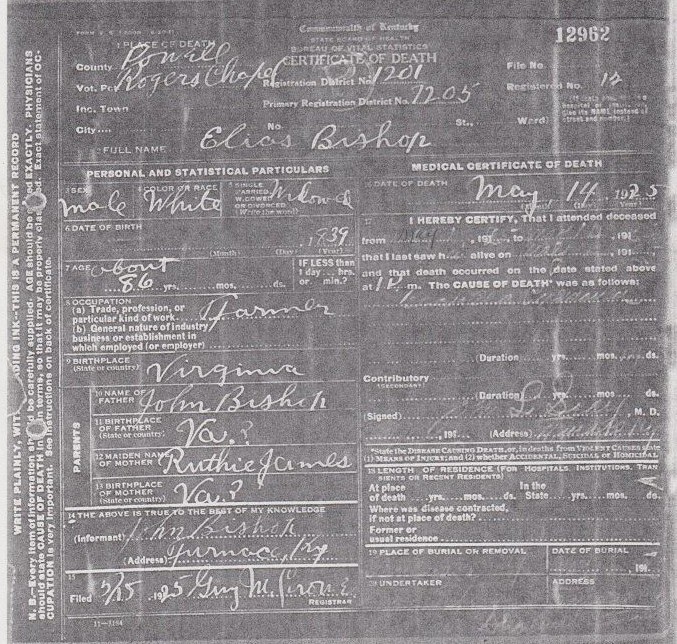 Commonwealth of Kentucky
STATE BOARD OF HEALTH
BUREAU OF VITAL STATISTICS
CERTIFICATE OF DEATH
12962
1 PLACE OF DEATH
County Powell
Vot. Pct. Rogers Chapel
Inc. Town
City
Registration District No. 1201
Primary Registration District No. 7205
No. St., Ward)
File No.
Registered No. 12
2 FULL NAME Elias Bishop
PERSONAL AND STATISTICAL PARTICULARS
3 SEX male
4 COLOR OR RACE White
5 SINGLE MARRIED, WIDOWED OR DIVORCED (Write the word) Widowed
6 DATE OF BIRTH
1839
(Month) (Day) (Year)
7 AGE about
86 yrs. mos. ds.
IF LESS than 1 day... hrs. or min.?
8 OCCUPATION
(a) Trade, profession, or particular kind of work Farmer
(b) General nature of industry business or establishment in which employed (or employer)
9 BIRTHPLACE
(State or country) Virginia
PARENTS
10 NAME OF FATHER John Bishop
11 BIRTHPLACE OF FATHER (State or country) Va.?
12 MAIDEN NAME OF MOTHER Ruthie James
13 BIRTHPLACE OF MOTHER (State or country) Va?
14 THE ABOVE IS TRUE TO THE BEST OF MY KNOWLEDGE
(Informant) John Bishop
(Address) Furnace, Ky
15
Filed 5/15 1925 Guy M.
REGISTRAR
11-3184
MEDICAL CERTIFICATE OF DEATH
16 DATE OF DEATH
May 14, 1925
(Day) (Year)
17 I HEREBY CERTIFY, That I attended deceased
from , 191 , to , 191
that I last saw h alive on , 191
and that death occurred on the date stated above
at m. The CAUSE OF DEATH* was as follows:
(Duration) yrs. mos. ds.
Contributory
(SECONDARY)
(Duration) yrs. mos. ds.
(Signed) , M. D.
, 191 (Address)
*State the DISEASE CAUSING DEATH, or, in deaths from VIOLENT CAUSES state
(1) MEANS OF INJURY; and (2) whether ACCIDENTAL, SUICIDAL or HOMICIDAL
18 LENGTH OF RESIDENCE (FOR HOSPITALS, INSTITUTIONS, TRANSIENTS OR RECENT RESIDENTS)
At place of death yrs. mos. ds. In the State yrs. mos. ds.
Where was disease contracted,
if not at place of death?
Former or
usual residence
19 PLACE OF BURIAL OR REMOVAL
DATE OF BURIAL
, 191
20 UNDERTAKER
ADDRESS
WRITE PLAINLY, WITH UNFADING INK—THIS IS A PERMANENT RECORD
N. B.—Every item of information should be carefully supplied. AGE should be stated EXACTLY. PHYSICIANS
should state CAUSE OF DEATH in terms, so that it may be properly classified. Exact statement of OC-
CUPATION is very important. See instructions on back of certificate.